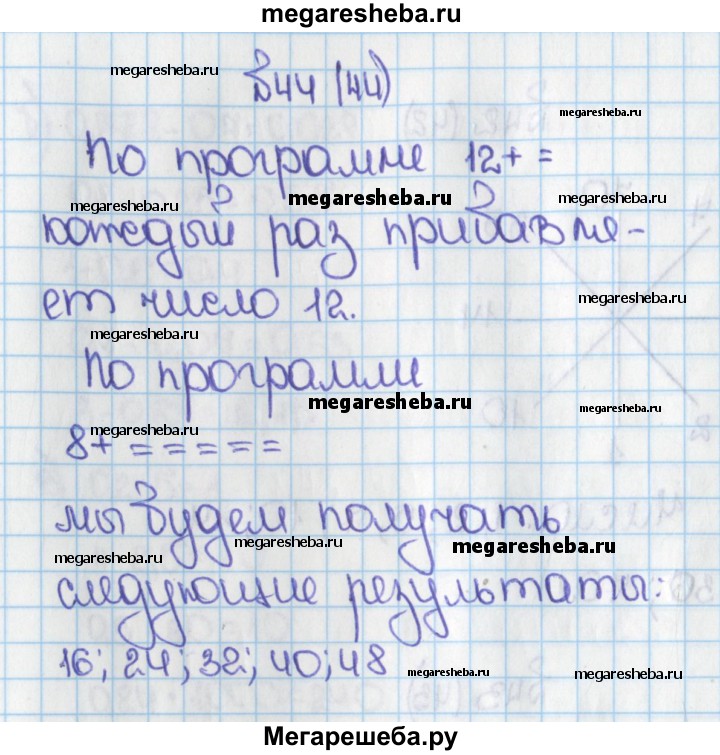 megaresheba.ru
megaresheba.ru
№44 (44)
megaresheba.ru
По программе 12+ =
megaresheba.ru
megaresheba.ru
megaresheba.ru
каждый раз прибавля-
ет число 12.
megaresheba.ru
megaresheba.ru
По программе
megaresheba.ru
megaresheba.ru
8+ = = = = =
мы будем получать
megaresheba.ru
megaresheba.ru
megaresheba.ru
следующие результаты:
16; 24; 32; 40; 48
megaresheba.ru
Мегарешеба.ру